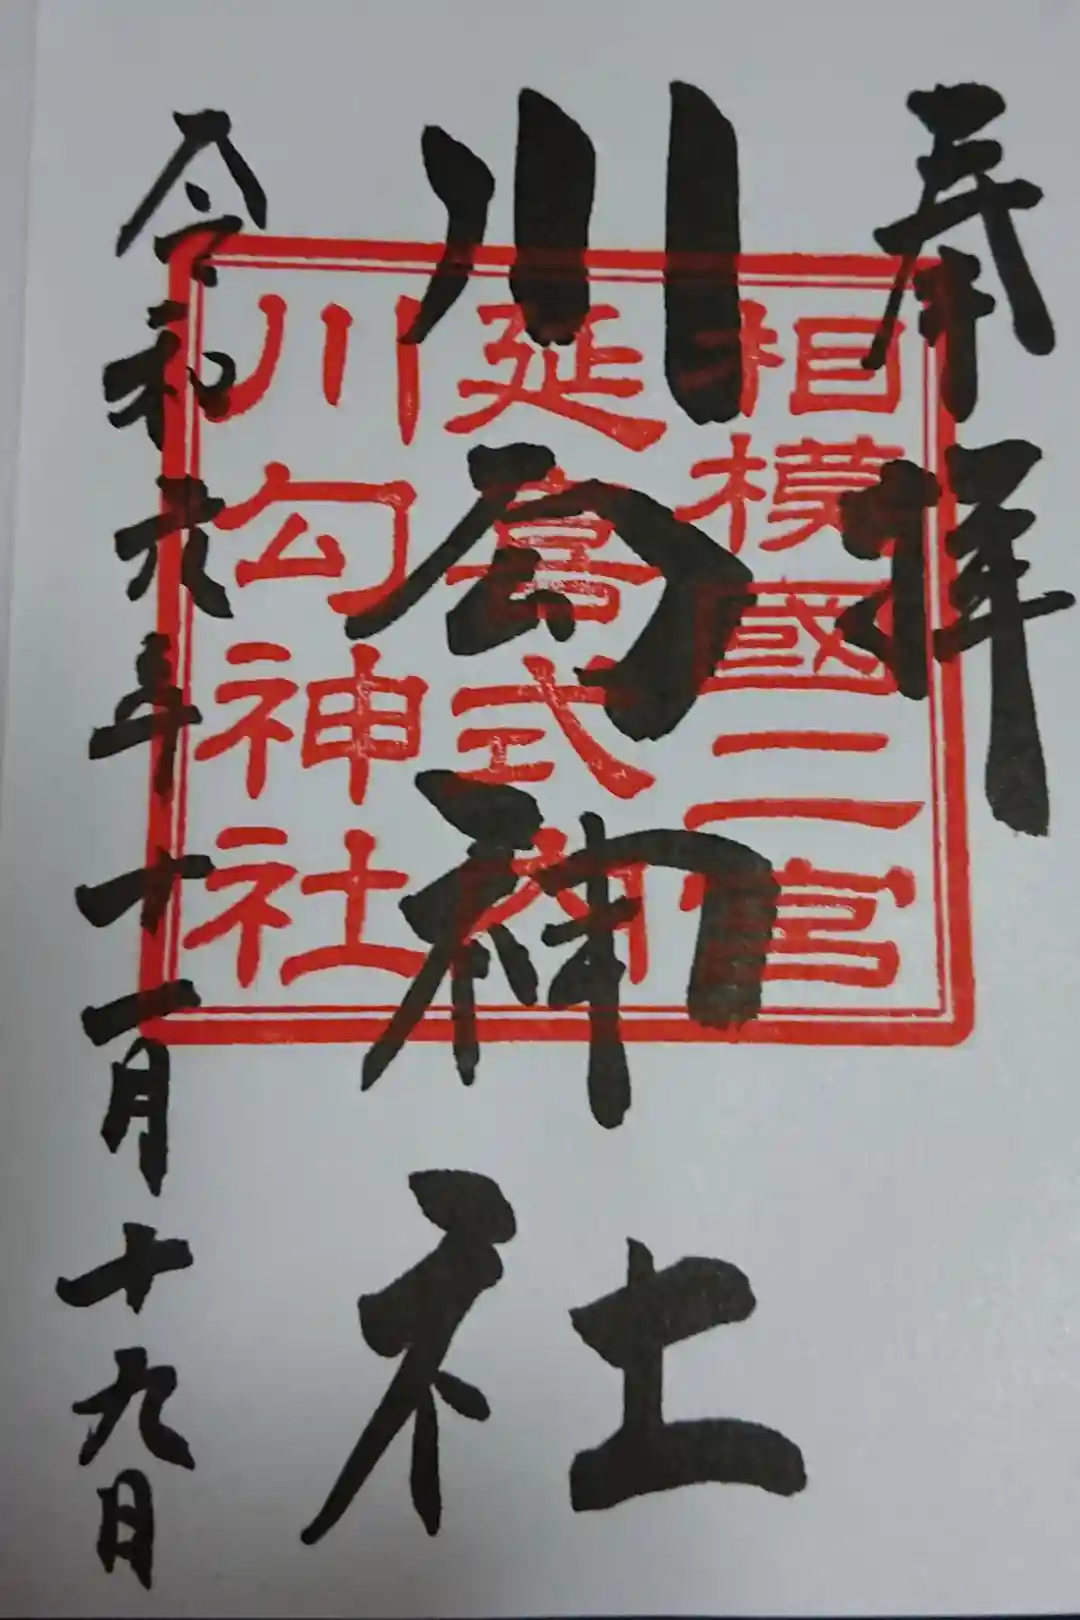 奉拝
川勾神社
相模國二宮
延喜式内
川勾神社
令和六年十一月十九日